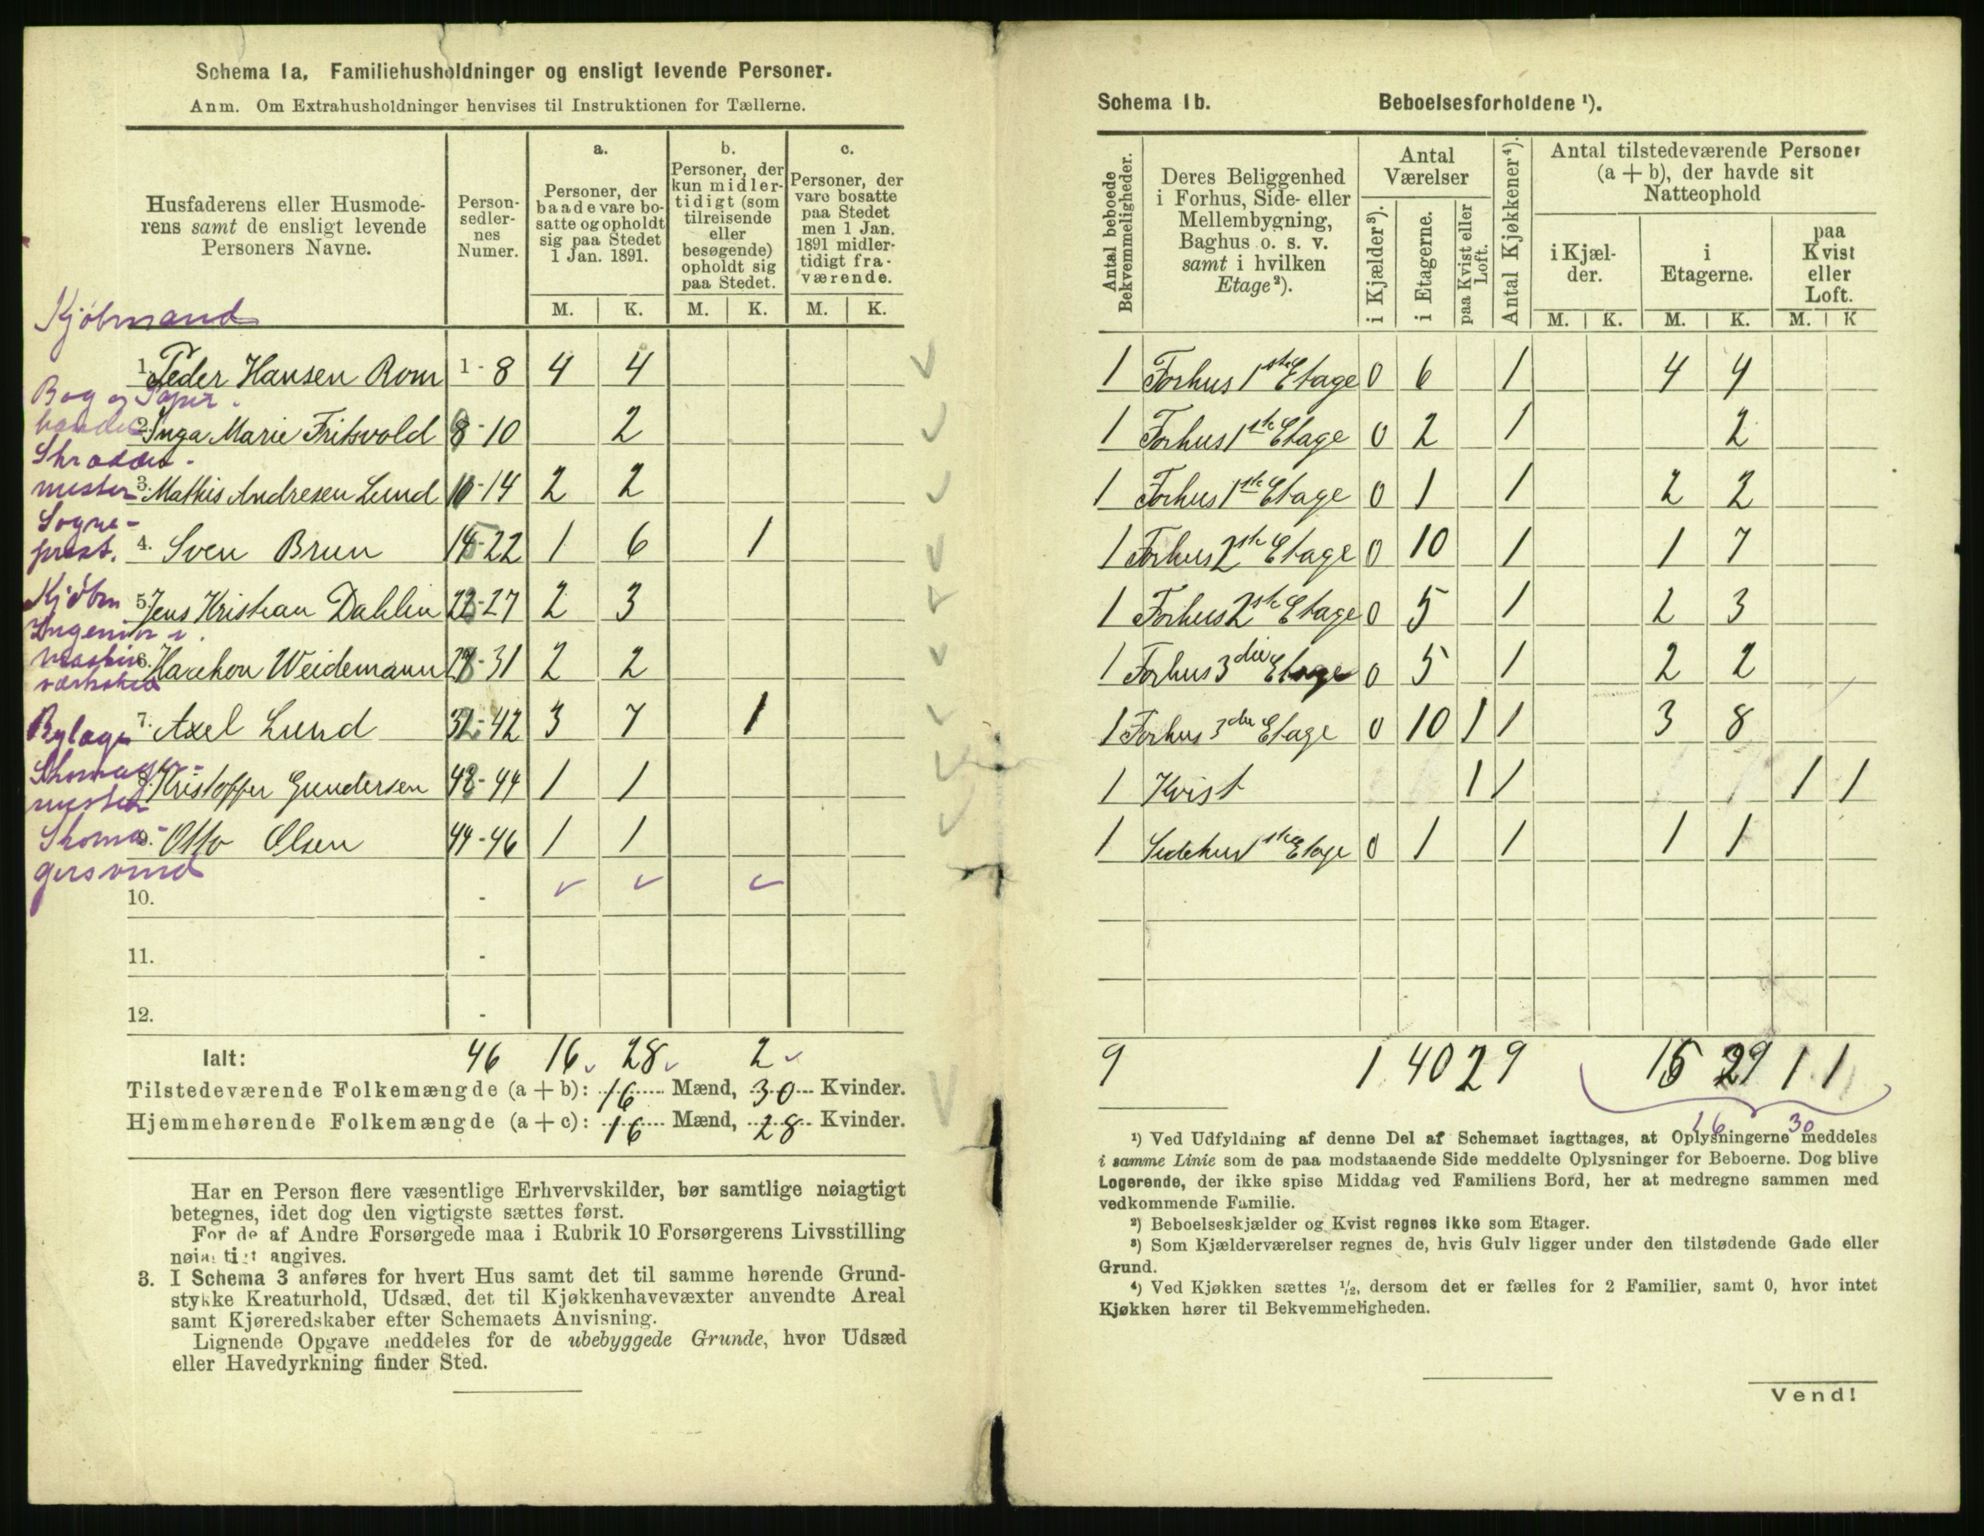 Schema 1a, Familiehusholdninger og ensligt levende Personer.
Anm. Om Extrahusholdninger henvises til Instruktionen for Tællerne.
Husfaderens eller Husmoderens samt de ensligt levende Personers Navne.
Person-sedlernes Numer.
a. Personer, der baade vare bosatte og opholdt sig paa Stedet 1 Jan. 1891.
b. Personer, der kun midlertidigt (som tilreisende eller besøgende) opholdt sig paa Stedet.
c. Personer, der vare bosatte paa Stedet men 1 Jan. 1891 midlertidigt fraværende.
M. K. M. K. M. K.
Kjøbmand
1. Peder Hansen Rom 1-8 4 4
Bog og Papir
handel
2. Inga Marie Fritsvold 8-10 2
Skrædder-
mester
3. Mathis Andresen Lund 10-14 2 2
Sogne-
prest.
4. Sven Brun 15-22 1 6 1
Kjøbm
5. Jens Kristian Dahlin 23-27 2 3
Ingeniør i
6. Haakon Weidemann 28-31 2 2
Bylæge
7. Axel Lund 32-42 3 7 1
Skomager-
mester
8. Kristoffer Gundersen 43-44 1 1
Skoma-
gersvend
9. Otto Olsen 44-46 1 1
10. -
11. -
12. -
Ialt: 46 16 28 2
Tilstedeværende Folkemængde (a + b): 16 Mænd, 30 Kvinder.
Hjemmehørende Folkemængde (a + c): 16 Mænd, 28 Kvinder.
Har en Person flere væsentlige Erhvervskilder, bør samtlige nøiagtigt
betegnes, idet dog den vigtigste sættes først.
For de af Andre Forsørgede maa i Rubrik 10 Forsørgerens Livsstilling
nøiagtigt angives.
3. I Schema 3 anføres for hvert Hus samt det til samme hørende Grund-
stykke Kreaturhold, Udsæd, det til Kjøkkenhavevæxter anvendte Areal
samt Kjøreredskaber efter Schemaets Anvisning.
Lignende Opgave meddeles for de ubebyggede Grunde, hvor Udsæd
eller Havedyrkning finder Sted.
Schema 1b. Beboelsesforholdene ¹).
Antal beboede Bekvemmeligheder.
Deres Beliggenhed i Forhus, Side- eller Mellembygning, Baghus o. s. v. samt i hvilken Etage²).
Antal Værelser
i Kjælder³).
i Etagerne.
paa Kvist eller Loft.
Antal Kjøkkener⁴).
Antal tilstedeværende Personer (a + b), der havde sit Natteophold
i Kjælder.
i Etagerne.
paa Kvist eller Loft.
M. K. M. K. M. K
1 Forhus 1ste Etage 0 6 1 4 4
1 Forhus 1ste Etage 0 2 1 2
1 Forhus 1ste Etage 0 1 1 2 2
1 Forhus 2ste Etage 0 10 1 1 7
1 Forhus 2ste Etage 0 5 1 2 3
1 Forhus 3die Etage 0 5 1 2 2
1 Forhus 3die Etage 0 10 1 1 3 8
1 Kvist 1 1 1 1
1 Sidehus 1ste Etage 0 1 1 1 1
9 1 40 2 9 15 29 1 1
16 30
¹) Ved Udfyldning af denne Del af Schemaet iagttages, at Oplysningerne meddeles
i samme Linie som de paa modstaaende Side meddelte Oplysninger for Beboerne. Dog blive
Logerende, der ikke spise Middag ved Familiens Bord, her at medregne sammen med
vedkommende Familie.
²) Beboelseskjælder og Kvist regnes ikke som Etager.
³) Som Kjælderværelser regnes de, hvis Gulv ligger under den tilstødende Gade eller
Grund.
⁴) Ved Kjøkken sættes ½, dersom det er fælles for 2 Familier, samt 0, hvor intet
Kjøkken hører til Bekvemmeligheden.
Vend!